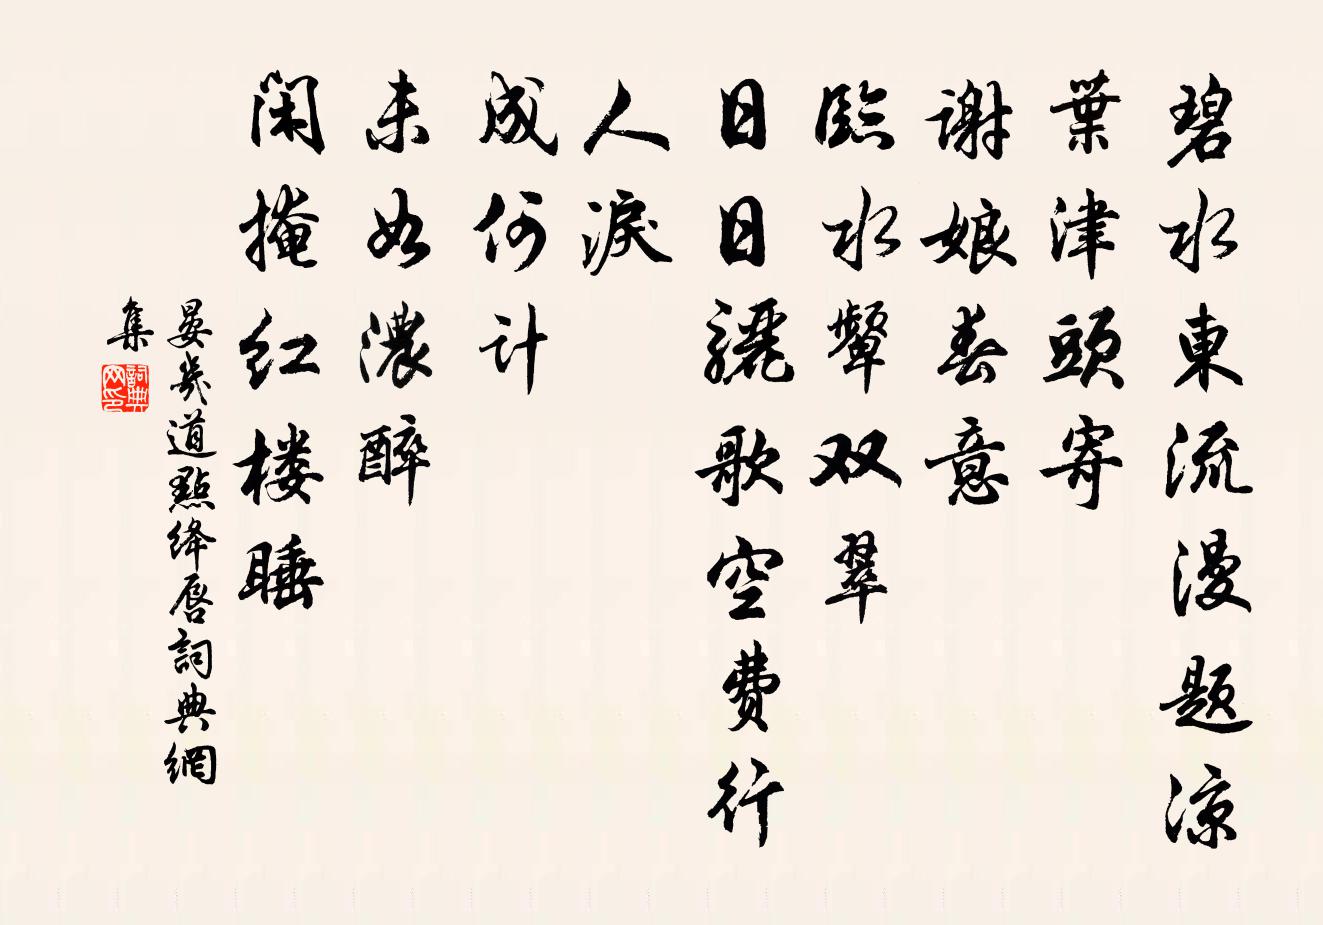 碧水東流漫題涼
葉津頭寄
謝娘春意
臨水顰双翠
日日驪歌空費行
人淚
成何计
未如濃醉
閑掩红楼睡
晏幾道點絳唇詞典網
集
詞典网印